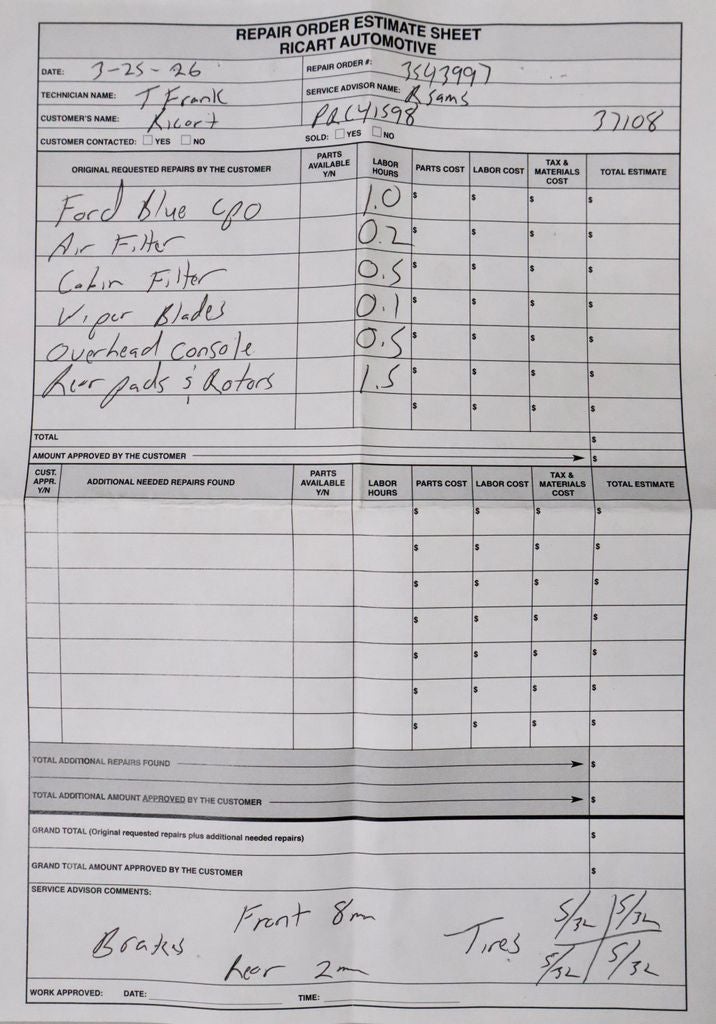 REPAIR ORDER ESTIMATE SHEET
RICART AUTOMOTIVE
DATE: 3-25-26 REPAIR ORDER #: 3543997
TECHNICIAN NAME: T Frank SERVICE ADVISOR NAME: R Sams
CUSTOMER'S NAME: Ricart PRC41598 37108
CUSTOMER CONTACTED: YES NO SOLD: YES NO
ORIGINAL REQUESTED REPAIRS BY THE CUSTOMER PARTS AVAILABLE Y/N LABOR HOURS PARTS COST LABOR COST TAX & MATERIALS COST TOTAL ESTIMATE
Ford Blue CPO 1.0 $ $ $ $
Air Filter 0.2 $ $ $ $
Cabin Filter 0.5 $ $ $ $
Wiper Blades 0.1 $ $ $ $
Overhead Console 0.5 $ $ $ $
Rear pads & Rotors 1.5 $ $ $ $
$ $ $ $
TOTAL $
AMOUNT APPROVED BY THE CUSTOMER $
CUST. APPR. Y/N ADDITIONAL NEEDED REPAIRS FOUND PARTS AVAILABLE Y/N LABOR HOURS PARTS COST LABOR COST TAX & MATERIALS COST TOTAL ESTIMATE
$ $ $ $
$ $ $ $
$ $ $ $
$ $ $ $
$ $ $ $
$ $ $ $
$ $ $ $
TOTAL ADDITIONAL REPAIRS FOUND $
TOTAL ADDITIONAL AMOUNT APPROVED BY THE CUSTOMER $
GRAND TOTAL (Original requested repairs plus additional needed repairs) $
GRAND TOTAL AMOUNT APPROVED BY THE CUSTOMER $
SERVICE ADVISOR COMMENTS:
Brakes Front 8mm Tires 5/32 5/32
Rear 2mm 5/32 5/32
WORK APPROVED: DATE: TIME: